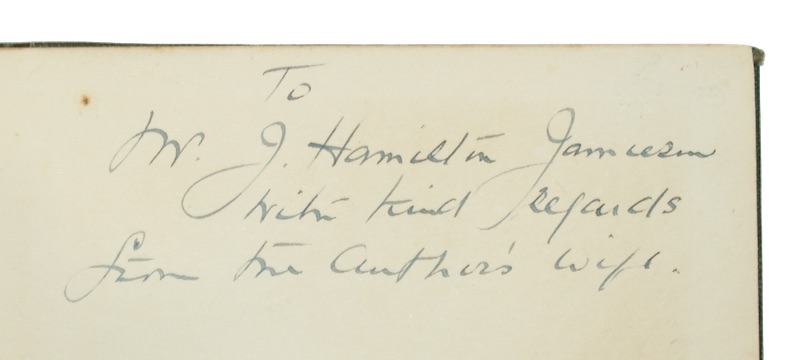 To
Mr. J. Hamilton Jamieson
with kind regards
from the Author's wife.